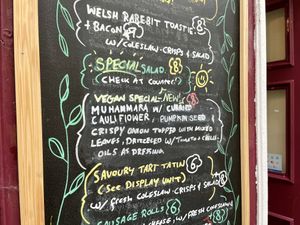 WELSH RAREBIT TOASTIE 8
+ BACON 9
W/ COLESLAW · CRISPS & SALAD
SPECIAL SALAD. 8
(CHECK AT COUNTER!)
VEGAN SPECIAL - NEW! 8
MUHAMMARA W/ CURRIED
CAULIFLOWER, PUMPKIN SEED &
CRISPY ONION TOPPED WITH MIXED
LEAVES, DRIZZLED W/ TOMATO & CHILLI
OILS AS DRESSING
SAVOURY TART TATIN 6
(SEE DISPLAY UNIT)
W/ FRESH COLESLAW · CRISPS & SALAD 8
SAUSAGE ROLLS 6
CHEESE, W/ FRESH COLESLAW